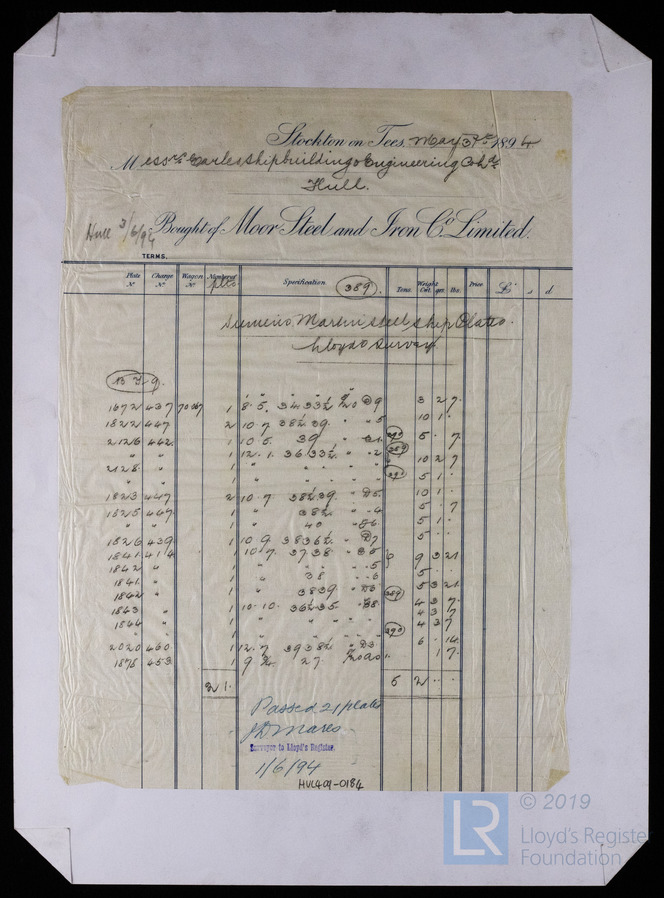 Stockton on Tees, May 31st 1894
Messrs Earles Shipbuilding & Engineering Co Ld
Hull.
Hull 3/6/94
Bought of Moor Steel and Iron Co. Limited.
TERMS,
Plate No Charge No Wagon No Number of plts Specification 389 Tons Weight Cwt. qrs. lbs. Price £ s d
Siemens Martin Steel Ship Plates.
Lloyds Survey
1672 437 70067 1 8.5. 34 33½ 3 2 7
1822 447 2 10.7 38½ 39 10 1
2126 442 1 10.5 39 390 5 7
" " 1 12.1 36 33½ 389 10 2 7
2128 " 1 " 390 5 1
1823 447 2 10.7 38½ 39 " D5 10 1
1825 447 1 " 38½ 5 7
" " 1 " 40 5 1
1826 439 1 10 9 38 36½ 5
1841 414 1 10.7 37 38 9 3 21
1842 " 1 5
1841 " 1 " 38 5 3 21
1842 " 1 " 38 39 389 4 3 7
1843 " 1 10.10. 36½ 35 4 3 7
1844 " 1 " 390 4 3 7
2020 460 1 12.7 39 38½ " D3 6 14
1875 453 1 9 27 1 7
21 5 2
Passed 21 plates
Surveyor to Lloyd's Register.
1/6/94
HUL409-0184
LR © 2019
Lloyd's Register
Foundation